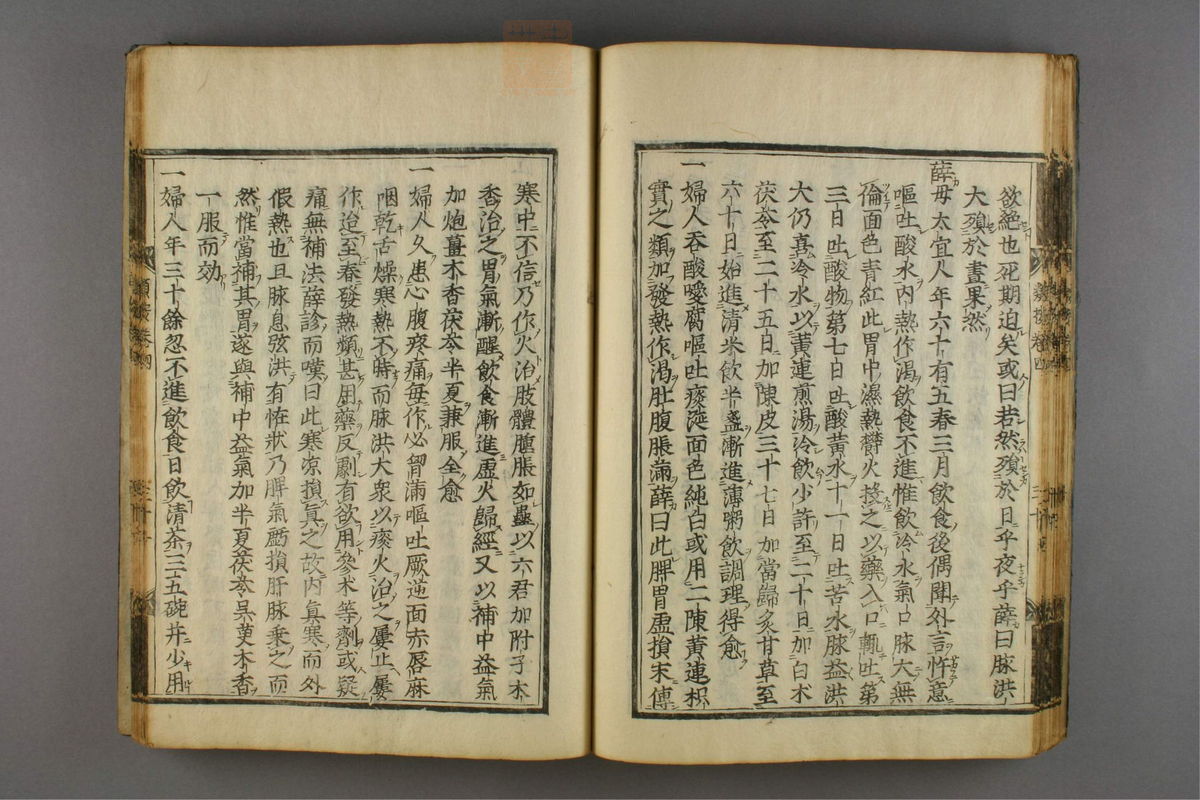 欲絶也死期迫矣或曰若然殞於日乎夜乎薛曰脉洪
大殞於晝果然
薛母太宜人年六十有五春三月飲食後偶聞外言忤意
嘔吐酸水内熱作渇飲食不進惟飲冷水氣口脉大無
倫面色青紅此胃中濕熱欝火投之以藥入口輒吐第
三日吐酸物第七日吐酸黄水十一日吐苦水脉益洪
大仍喜冷水以黄連煎湯冷飲少許至二十日加白术
茯苓至二十五日加陳皮三十七日加當歸炙甘草至
六十日始進清米飲半盞漸進薄粥飲調理得愈
一婦人吞酸噯腐嘔吐痰涎面色純白或用二陳黄連枳
實之類加發熱作渇肚腹脹滿薛曰此脾胃虚損末傳
寒中不信乃作火治肢體腫脹如蠱以六君加附子木
香治之胃氣漸醒飲食漸進虚火歸經又以補中益氣
加炮薑木香茯苓半夏兼服全愈
一婦人久患心腹疼痛毎作必胷滿嘔吐厥逆面赤唇麻
咽乾舌燥寒熱不時而脉洪大衆以痰火治之屢止屢
作迨至春發熱頻甚用藥反劇有欲用參术等劑或疑
痛無補法薛診而嘆曰此寒凉損真之故内真寒而外
假熱也且脉息弦洪有恠状乃脾氣虧損肝脉乗之而
然惟當補其胃遂與補中益氣加半夏茯苓呉茱木香
一服而効
一婦人年三十餘忽不進飲食日飲清茶三五碗并少用